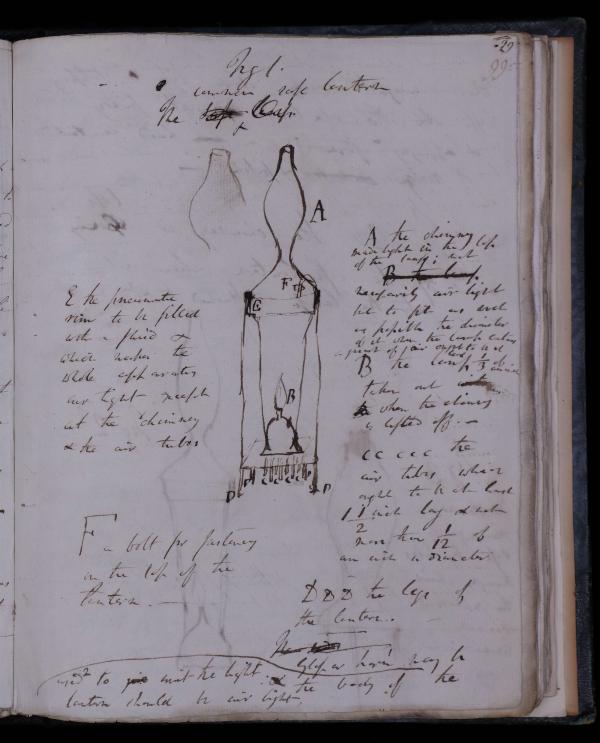 29
Fig 1.
common safe lantern
The
A
F
E
B
D
c c c c c
D
E the pneumatic
rim to be filled
with a fluid &
which renders the
whole apparatus
air tight except
at the chimney
& the air tubes
A the chimney
made tight in the top
of the lamp; not
B the lamp
necessarily air tight
but to fit as much
as possible the diameter
of it when the lamp
B the lamp
taken out
when the chimney
is lifted off. —
c c c c c the
air tubes which
ought to be at least
1 1/2 inch long & not
more than 1/12 of
an inch in diameter
F a bolt for fastening
on the top of the
lantern. —
D D D the legs of
the lantern.
Glass or horn may be
used to emit the light & the body of the
lantern should be air tight.